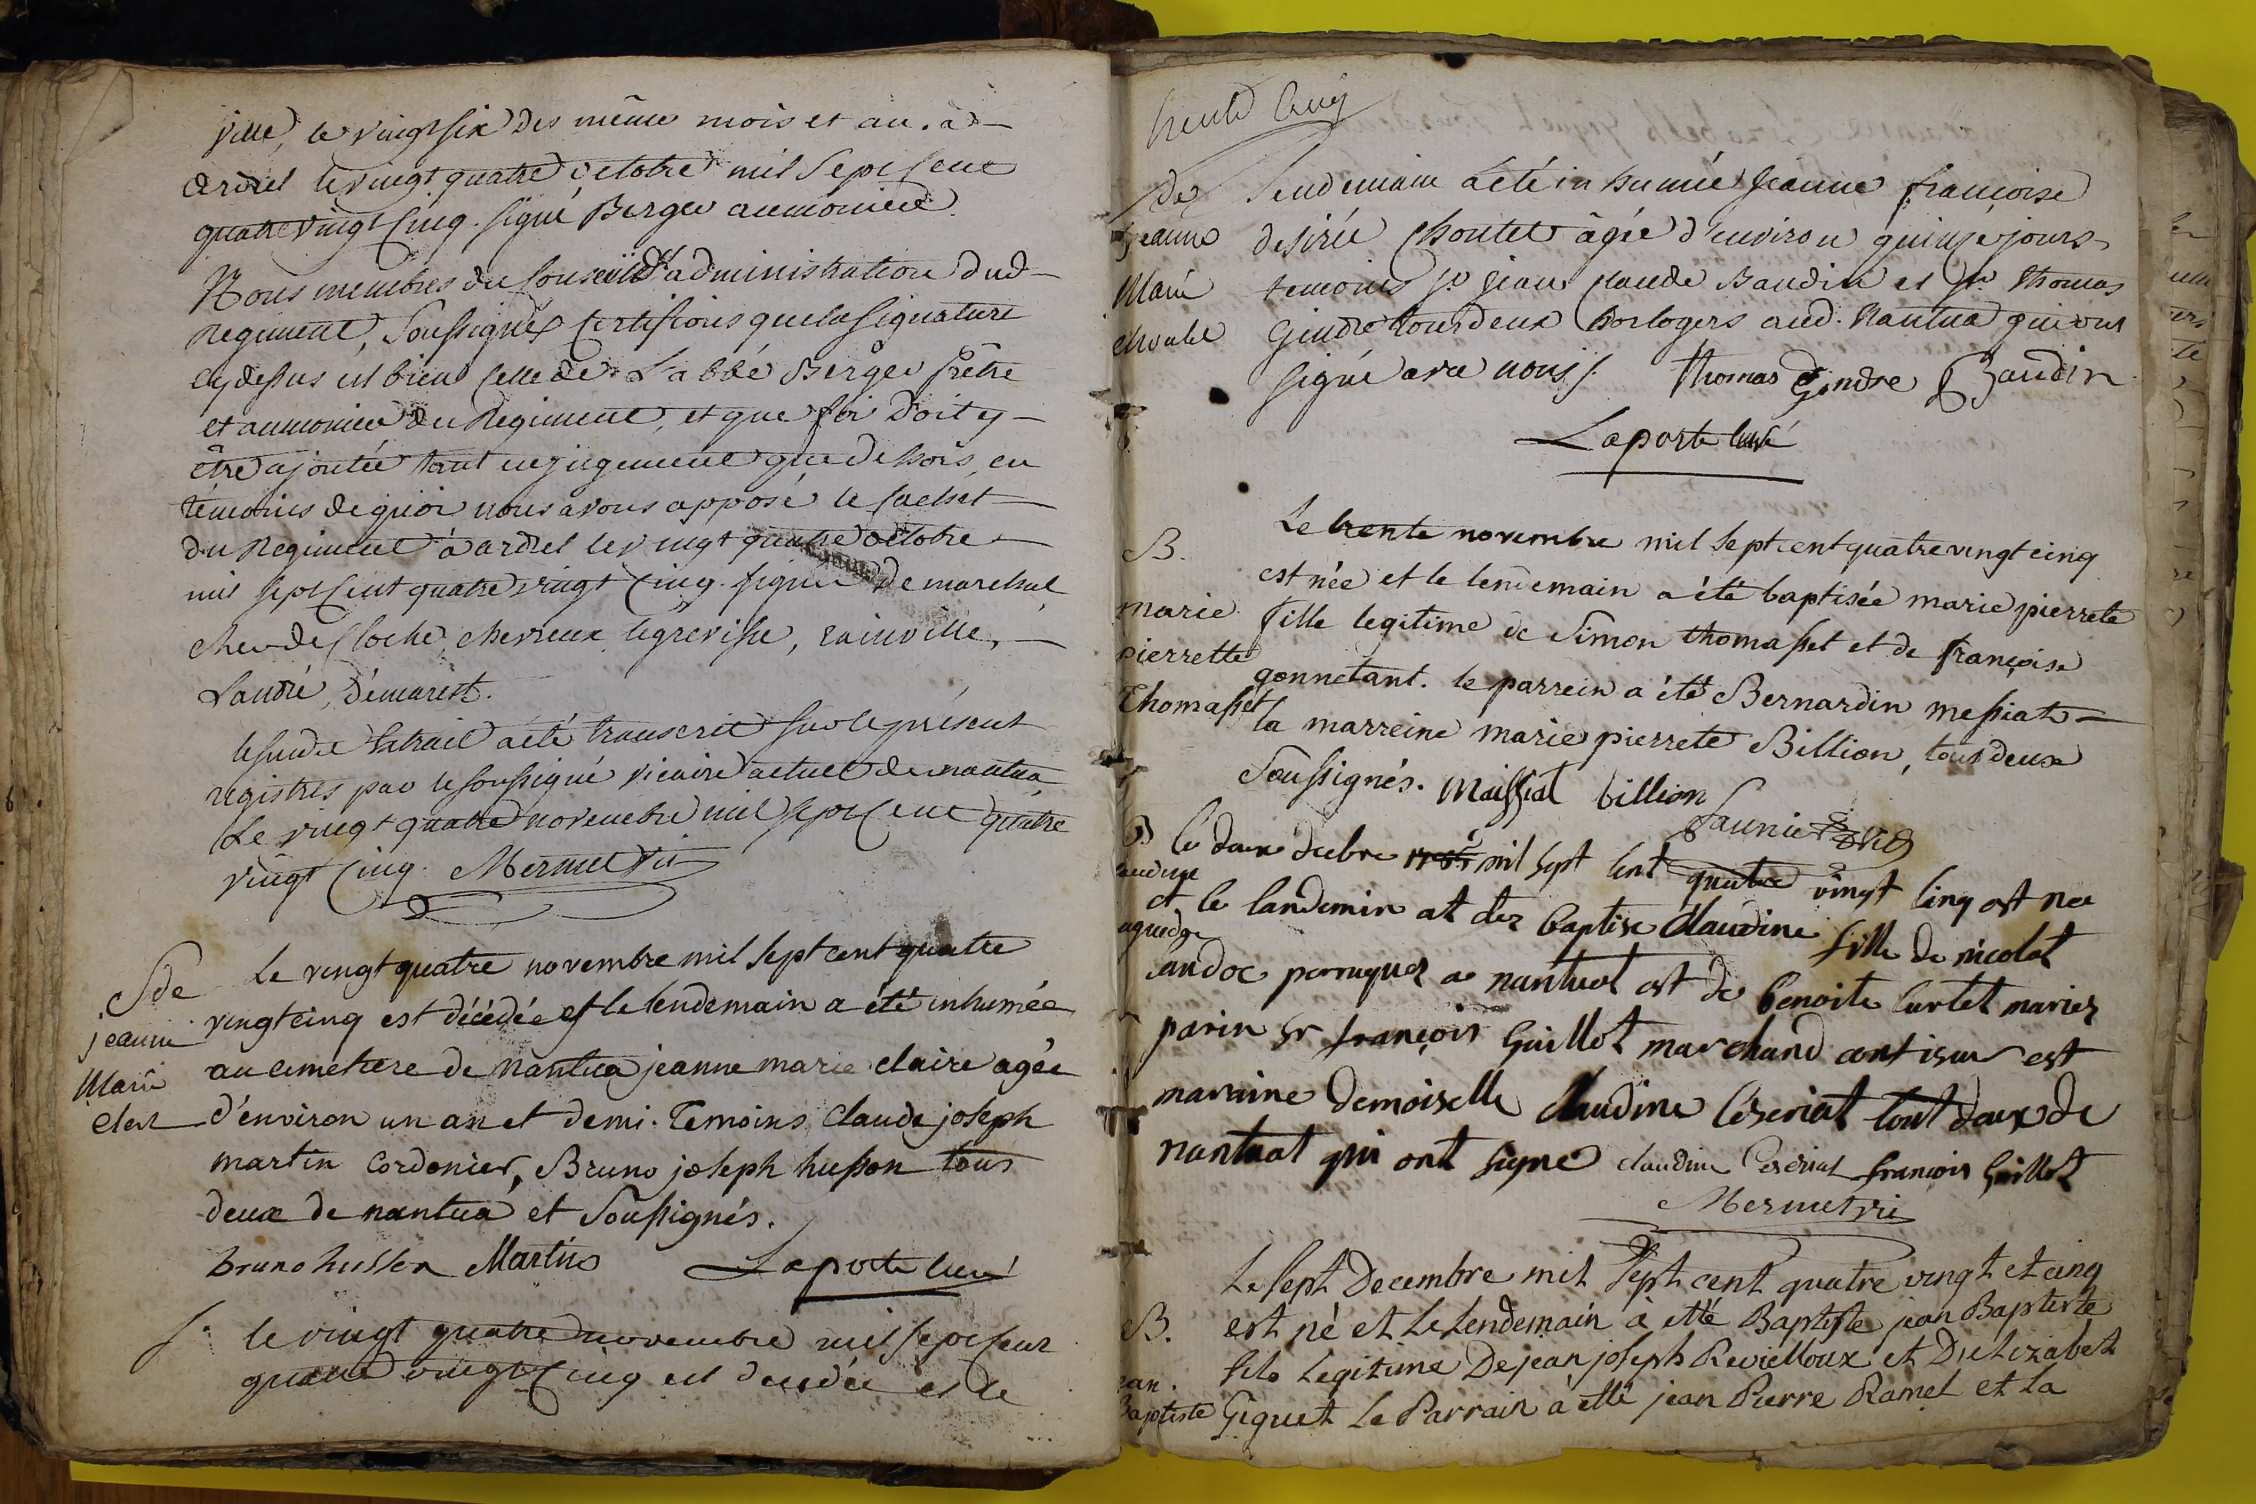 ville, le vingt six des même mois et an. à
ardres le vingt quatre octobre mil sept cent
quatre vingt cinq. signé Berger aumonier.
Nous membres du conseil d'administration dud
Regiment, soussignés certifions que la signature
cy dessus est bien celle de L'abbé Berger prêtre
et aumonier du Regiment, et que foi doit y
être ajoutée tant en jugement que dehors, en
témoins de quoi nous avons apposé le cachet
du Regiment à ardres le vingt quatre octobre
mil sept cent quatre vingt cinq. signés de marechal
cher de cloche, chevreux, legrevisse, rainville,
Landré, démarest.
le susd. extrait a été transcrit sur le présent
registres par le soussigné vicaire actuel de nantua,
Le vingt quatre novembre mil sept cent quatre
vingt cinq. Mermet vic
Sde
jeanne
Marie
Le vingt quatre novembre mil sept cent quatre
vingt cinq est décédée et le lendemain a été inhumée
au cimetiere de nantua jeanne marie claire agée
d'environ un an et demi. Temoins claude joseph
martin cordonier, Bruno joseph husson tous
deux de nantua et soussignés.
bruno husson Martin Laporte curé
S. le vingt quatre novembre mil sept cent
quatre vingt cinq est decedée et le
trente cinq
de
jeanne
Marie
lendemain a été inhumée jeanne françoise
desirée Choulet âgée d'environ quinze jours
temoins sr. jean claude Baudin et sr. thomas
Gindre tous deux horlogers aud. Nantua qui ont
signé avec nous /. Thomas Gindre Baudin
Laporte curé
B.
marie
pierrette
Thomasset
Le trente novembre mil sept cent quatre vingt cinq
est née et le lendemain a été baptisée marie pierrete
fille legitime de Simon thomasset et de françoise
gonnetant. le parrein a été Bernardin messiat
la marreine marie pierrete Billion, tous deux
soussignés. Maissiat billion
B le deux decbre mil sept cent quatre vingt cinq est nee
et le landemin at etez baptise Claudine fille de nicolat
andoc perruquez a nantuat est de benoite Curtet mariez
parin sr françois Guillot marchand est
maraine demoiselle claudine Ceseriat tout deux de
nantuat qui ont signe claudine Ceseriat françois Guillot
Mermet vic
B.
jean
Baptiste
Le sept Decembre mil sept cent quatre vingt et cinq
est né et le lendemain à etté Baptiste jean Baptiste
fils Legitime De jean joseph Revielloux et D'elizabet
Giguet Le Parrain a etté jean Pierre Ramel et La